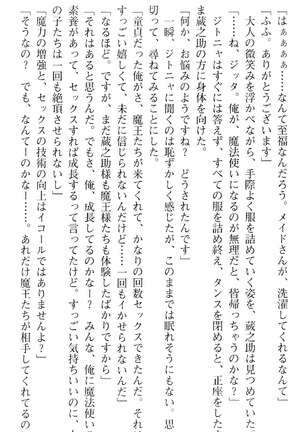 「はぁぁぁぁ……なんて至福なんだろう。メイドさんが、洗濯してくれるなんて
「ふふ。ありがとうございます」
大人の微笑みを浮かべながら、手際よく服を詰めていく姿を、蔵之助は見つめていた
「……ね、ジッタ。俺が、魔法使いになるのが無理だと、皆帰っちゃうのかな？」
ジトニャはすぐには答えず、すべての服を詰め終え、タンスを閉めると、正座をした
ま蔵之助の方に身体を向けた。
「何か、お悩みのようですね？　どうされたんです」
一瞬、ジトニャに聞くのは恥ずかしく感じたが、このままでは眠れそうにない。思い
って、尋ねてみることにした。
「童貞だった俺がさ、魔王たちが来てくれて、かなりの回数セックスできたんだ。それは
すっごい嬉しくて、未だに信じられないんだけど……一回もイかせられないんだ」
「なるほど。ですが、まだ蔵之助様も魔王様たちも体験したばかりですから」
「それはあると思うんだ。でもさ、俺、成長してるのかなー？　みんな、俺に魔法使い
素養があって、セックスすれば成長するって言ってたけど。すっごい気持ちいいのに、
の子たちは一回も絶頂させられないし」
「魔力の増強と、セックスの技術の向上はイコールではありませんよ？」
「そうなの？　でも、なんてーのかなー……。あれだけ魔王たちが相手してくれてるの